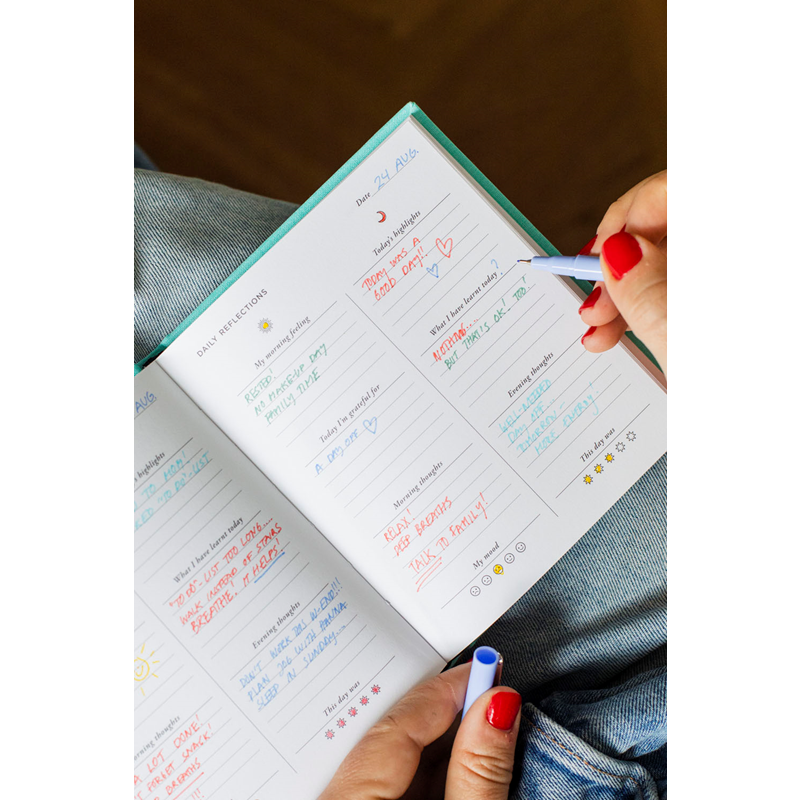 AUG
highlights
TO MOM!
TO DO"-LIST
What I have learnt today
"TO DO"-LIST TOO LONG....
WALK INSTEAD OF STAIRS
BREATHE. IT HELPS!
Evening thoughts
DON'T WORK THIS W-END!!!
PLAN JOB WITH HANNA
SLEEP IN SUNDAY....
This day was
thoughts
A LOT DONE!
FORGET SNACK!
BREATHS
DAILY REFLECTIONS
My morning feeling
RESTED!
NO MAKE-UP DAY
FAMILY TIME
Today I'm grateful for
A DAY OFF
Morning thoughts
RELAX!
DEEP BREATHS
TALK TO FAMILY!
My mood
Date 24 AUG
Today's highlights
TODAY WAS A
GOOD DAY!!
What I have learnt today?
NOTHING....
BUT THAT'S OK! TOO!
Evening thoughts
WELL-NEEDED
DAY OFF...
TOMORROW
MORE ENERGY!
This day was